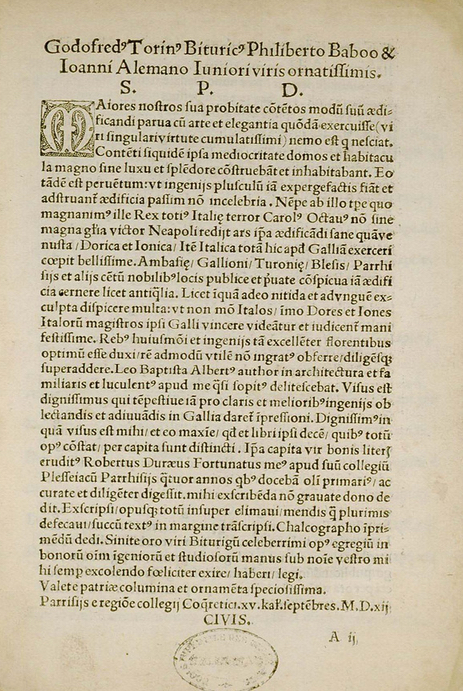 Godofredꝰ Torinꝰ Bituricꝰ Philiberto Baboo &
Ioanni Alemano Iuniori viris ornatissimis.
S. P. D.
MAiores nostros sua probitate cōtētos modū suū ædi-
ficandi parua cū arte et elegantia quōdā exercuisse (vi
ri singulari virtute cumulatissimi) nemo est q nesciat.
Contēti siquidē ipsa mediocritate domos et habitacu
la magno sine luxu et splēdore cōstruebāt et inhabitant. Eo
tādē est peruētum: vt ingenijs plusculū iā expergefactis fiāt et
adstruant᷑ ædificia passim nō incelebria. Nēpe ab illo tpe quo
magnanimꝰ ille Rex totiꝰ Italię terror Carolꝰ Octauꝰ nō sine
magna gl̄ia victor Neapoli redijt ars ip̄a ædificādi sane quāve
nusta / Dorica et Ionica / Itē Italica totā hic apd̄ Galliā exerceri
cœpit bellissime. Ambasię / Gallioni / Turonię / Blesis / Parrhi
sijs et alijs cētū nobilibꝰ locis publice et p̄uate cōspicua iā ædifi
cia cernere licet antiq̄lia. Licet iquā adeo nitida et ad vnguē ex-
culpta dispicere multa: vt non mō Italos / imo Dores et Iones
Italorū magistros ipsi Galli vincere videātur et iudicent᷑ mani
festissime. Rebꝰ huiusmōi et ingenijs tā excellēter florentibus
optimū esse duxi / rē admodū vtilē nō ingratꝰ obferre / diligēsq;
superaddere. Leo Baptista Albertꝰ author in architectura et fa
miliaris et luculentꝰ apud me q̄si sopitꝰ delitescebat. Visus est
dignissimus qui tēpestiue iā pro claris et melioribꝰ ingenijs ob
lectandis et adiuuādis in Gallia daret᷑ īpressioni. Dignissimꝰ in
quā visus est mihi / et eo maxīe / qd̄ et libri ipsi decē / quibꝰ totū
opꝰ cōstat / per capita sunt distincti. Ip̄a capita vir bonis literꝭ
eruditꝰ Robertus Duræus Fortunatus meꝰ apud suū collegiū
Plesseiacū Parrhisijs q̄tuor annos qbꝰ docebā oli primariꝰ / ac
curate et diligēter digessit. mihi exscribēda nō grauate dono de
dit. Exscripsi / opusq; totū insuper elimaui / mendis q̄ plurimis
defecaui / succū textꝰ in margine trāscripsi. Chalcographo īpri-
mēdū dedi. Sinite oro viri Biturigū celeberrimi opꝰ egregiū in
bonorū oīm īgeniorū et studiosorū manus sub noīe vestro mi
hi semp excolendo fœliciter exire / haberi / legi.
Valete patriæ columina et ornamēta speciosissima.
Parrisijs e regiōe collegij Coq̄retici. xv. kal̄. septēbres. M.D.xij
CIVIS.
A ij.